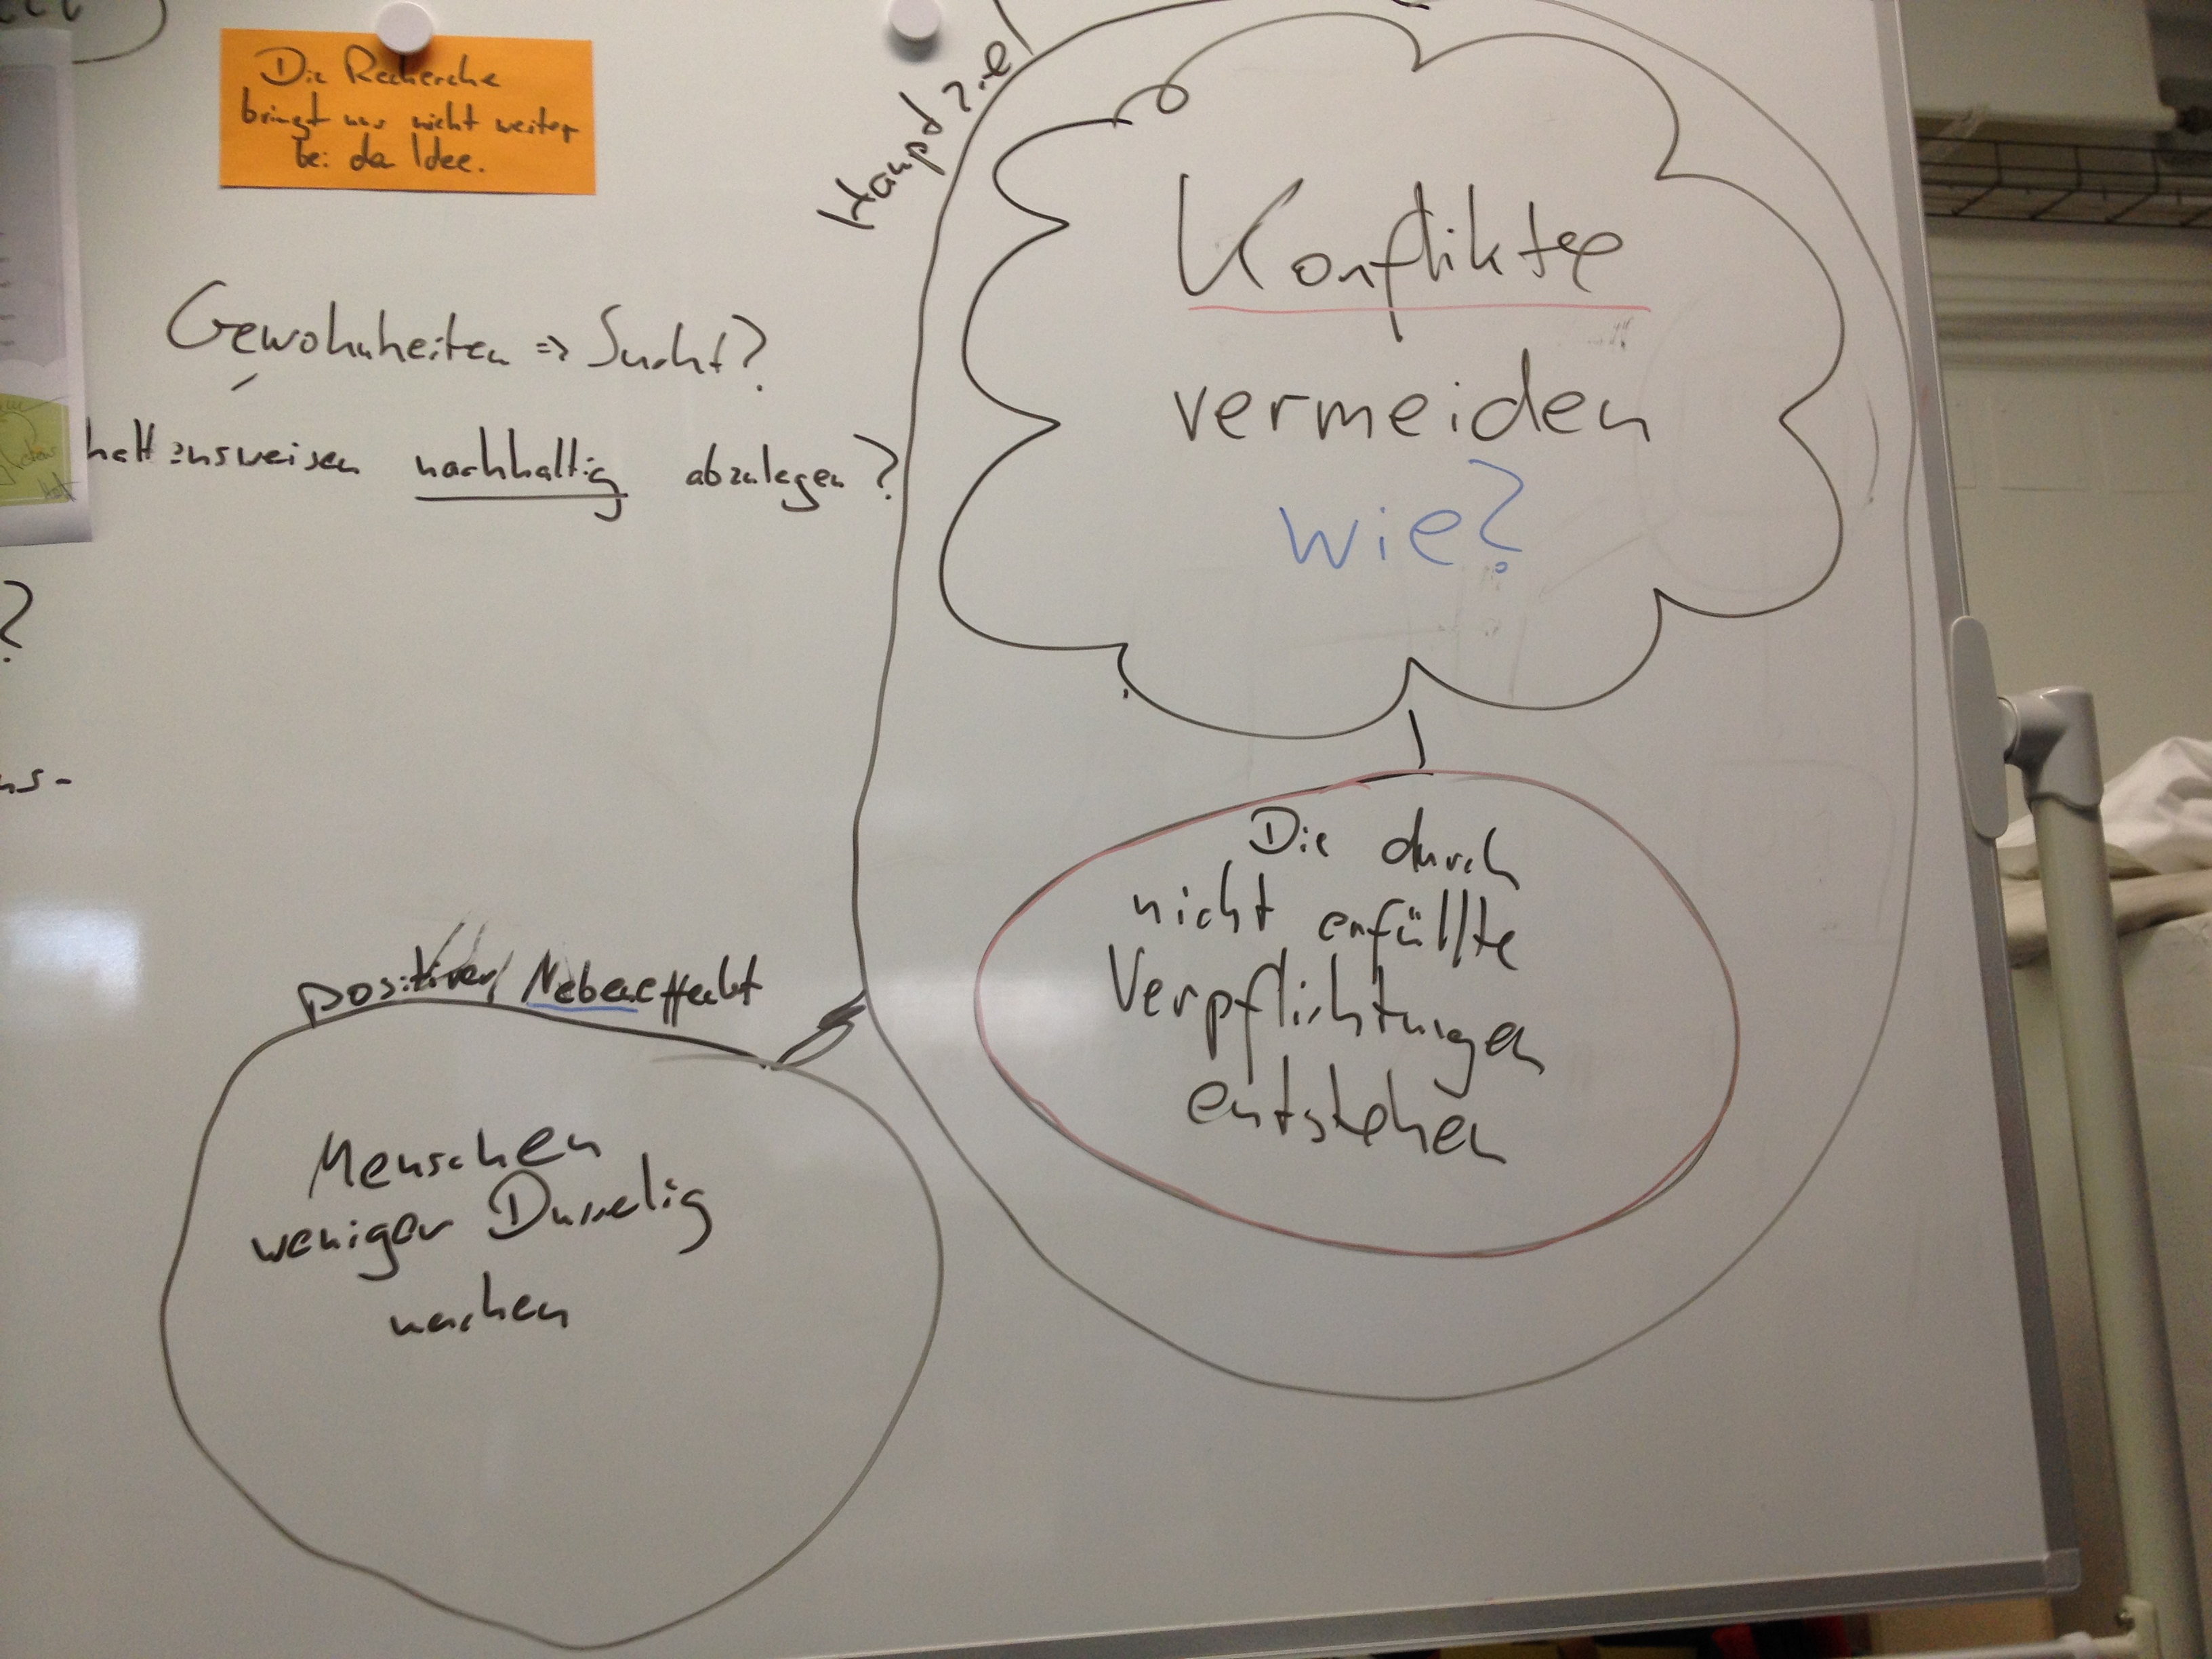 Die Recherche
bringt uns nicht weiter
bei der Idee.
Gewohnheiten => Sucht?
haltensweisen nachhaltig abzulegen?
?
ns-
Hauptziel
Konflikte
vermeiden
wie?
Die durch
nicht erfüllte
Verpflichtungen
entstehen
positiver Nebeneffekt
Menschen
weniger Dusselig
machen